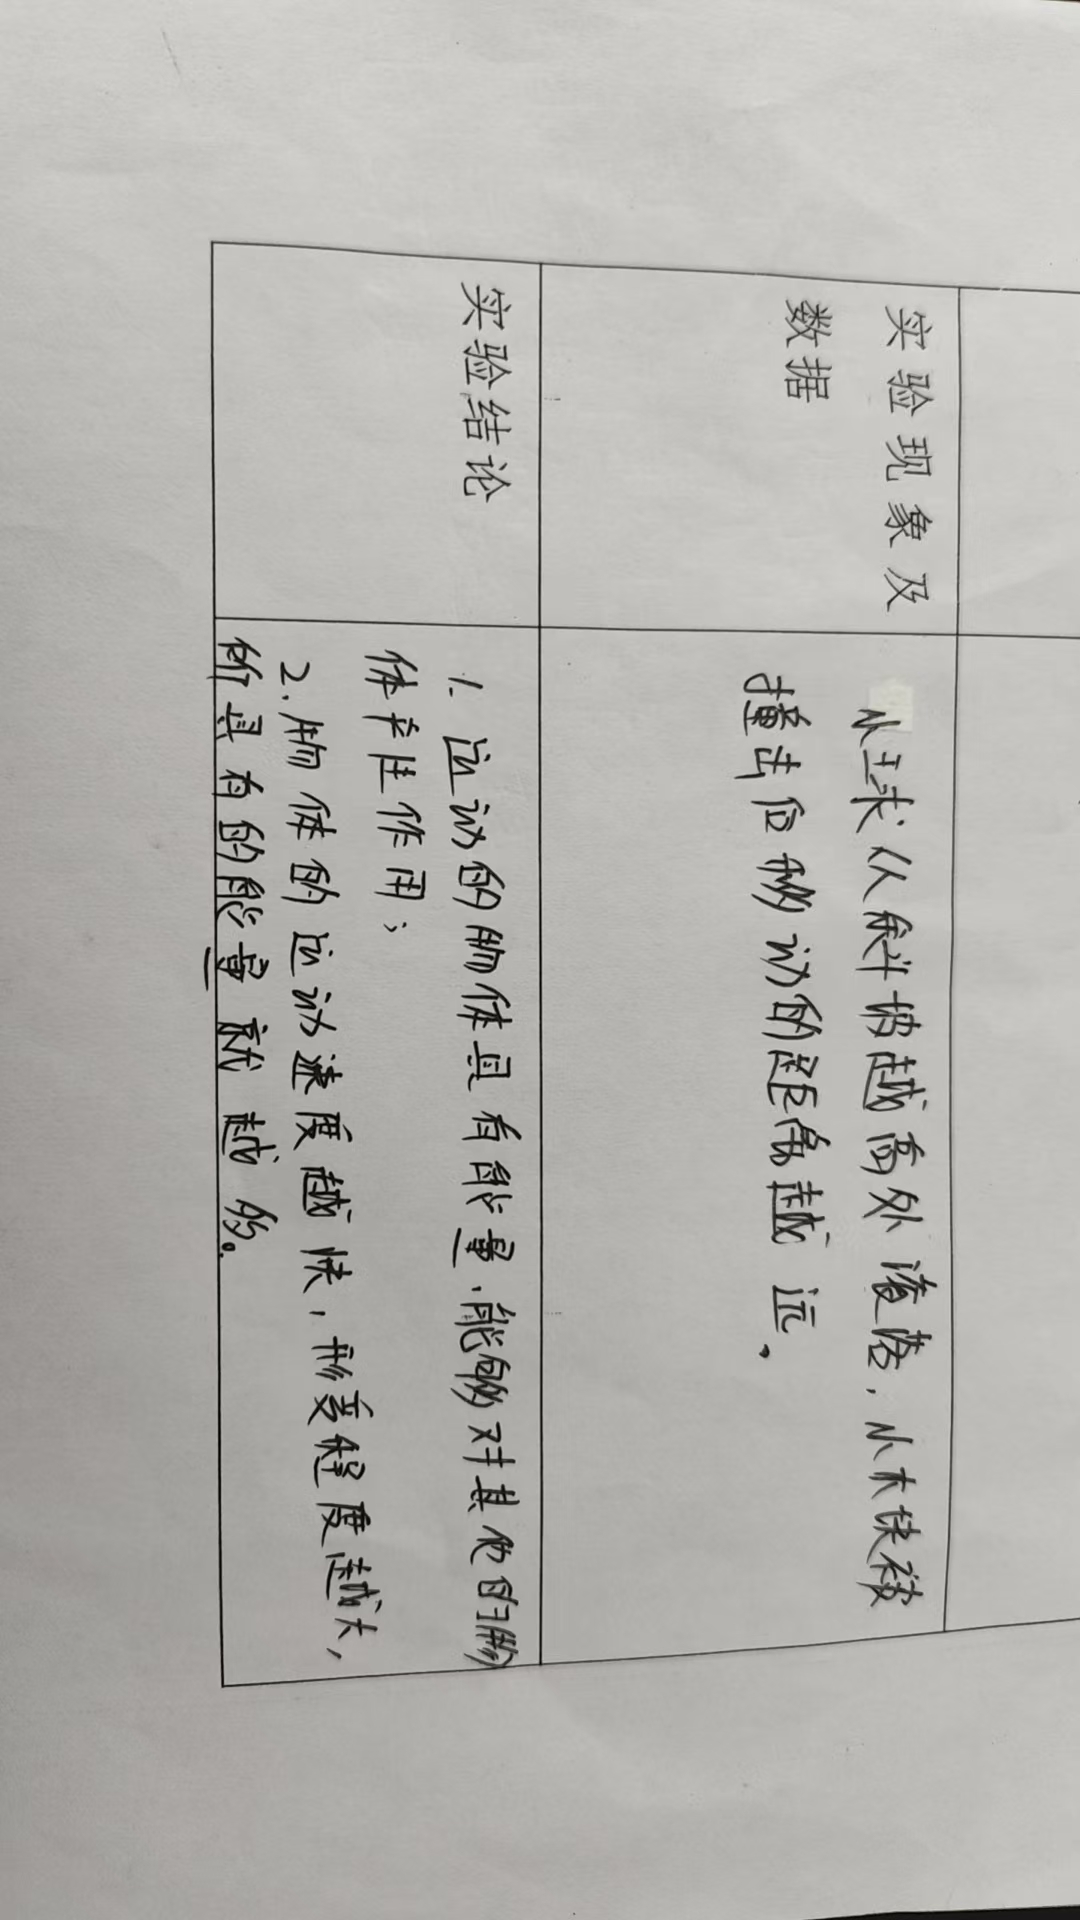 实验现象及
数据
小球从斜坡越高处滚落，小木块被
撞击后移动的距离越远.
实验结论
1. 运动的物体具有能量.能够对其他的物
体产生作用;
2.物体的运动速度越快，形变程度越大，
所具有的能量就越多。